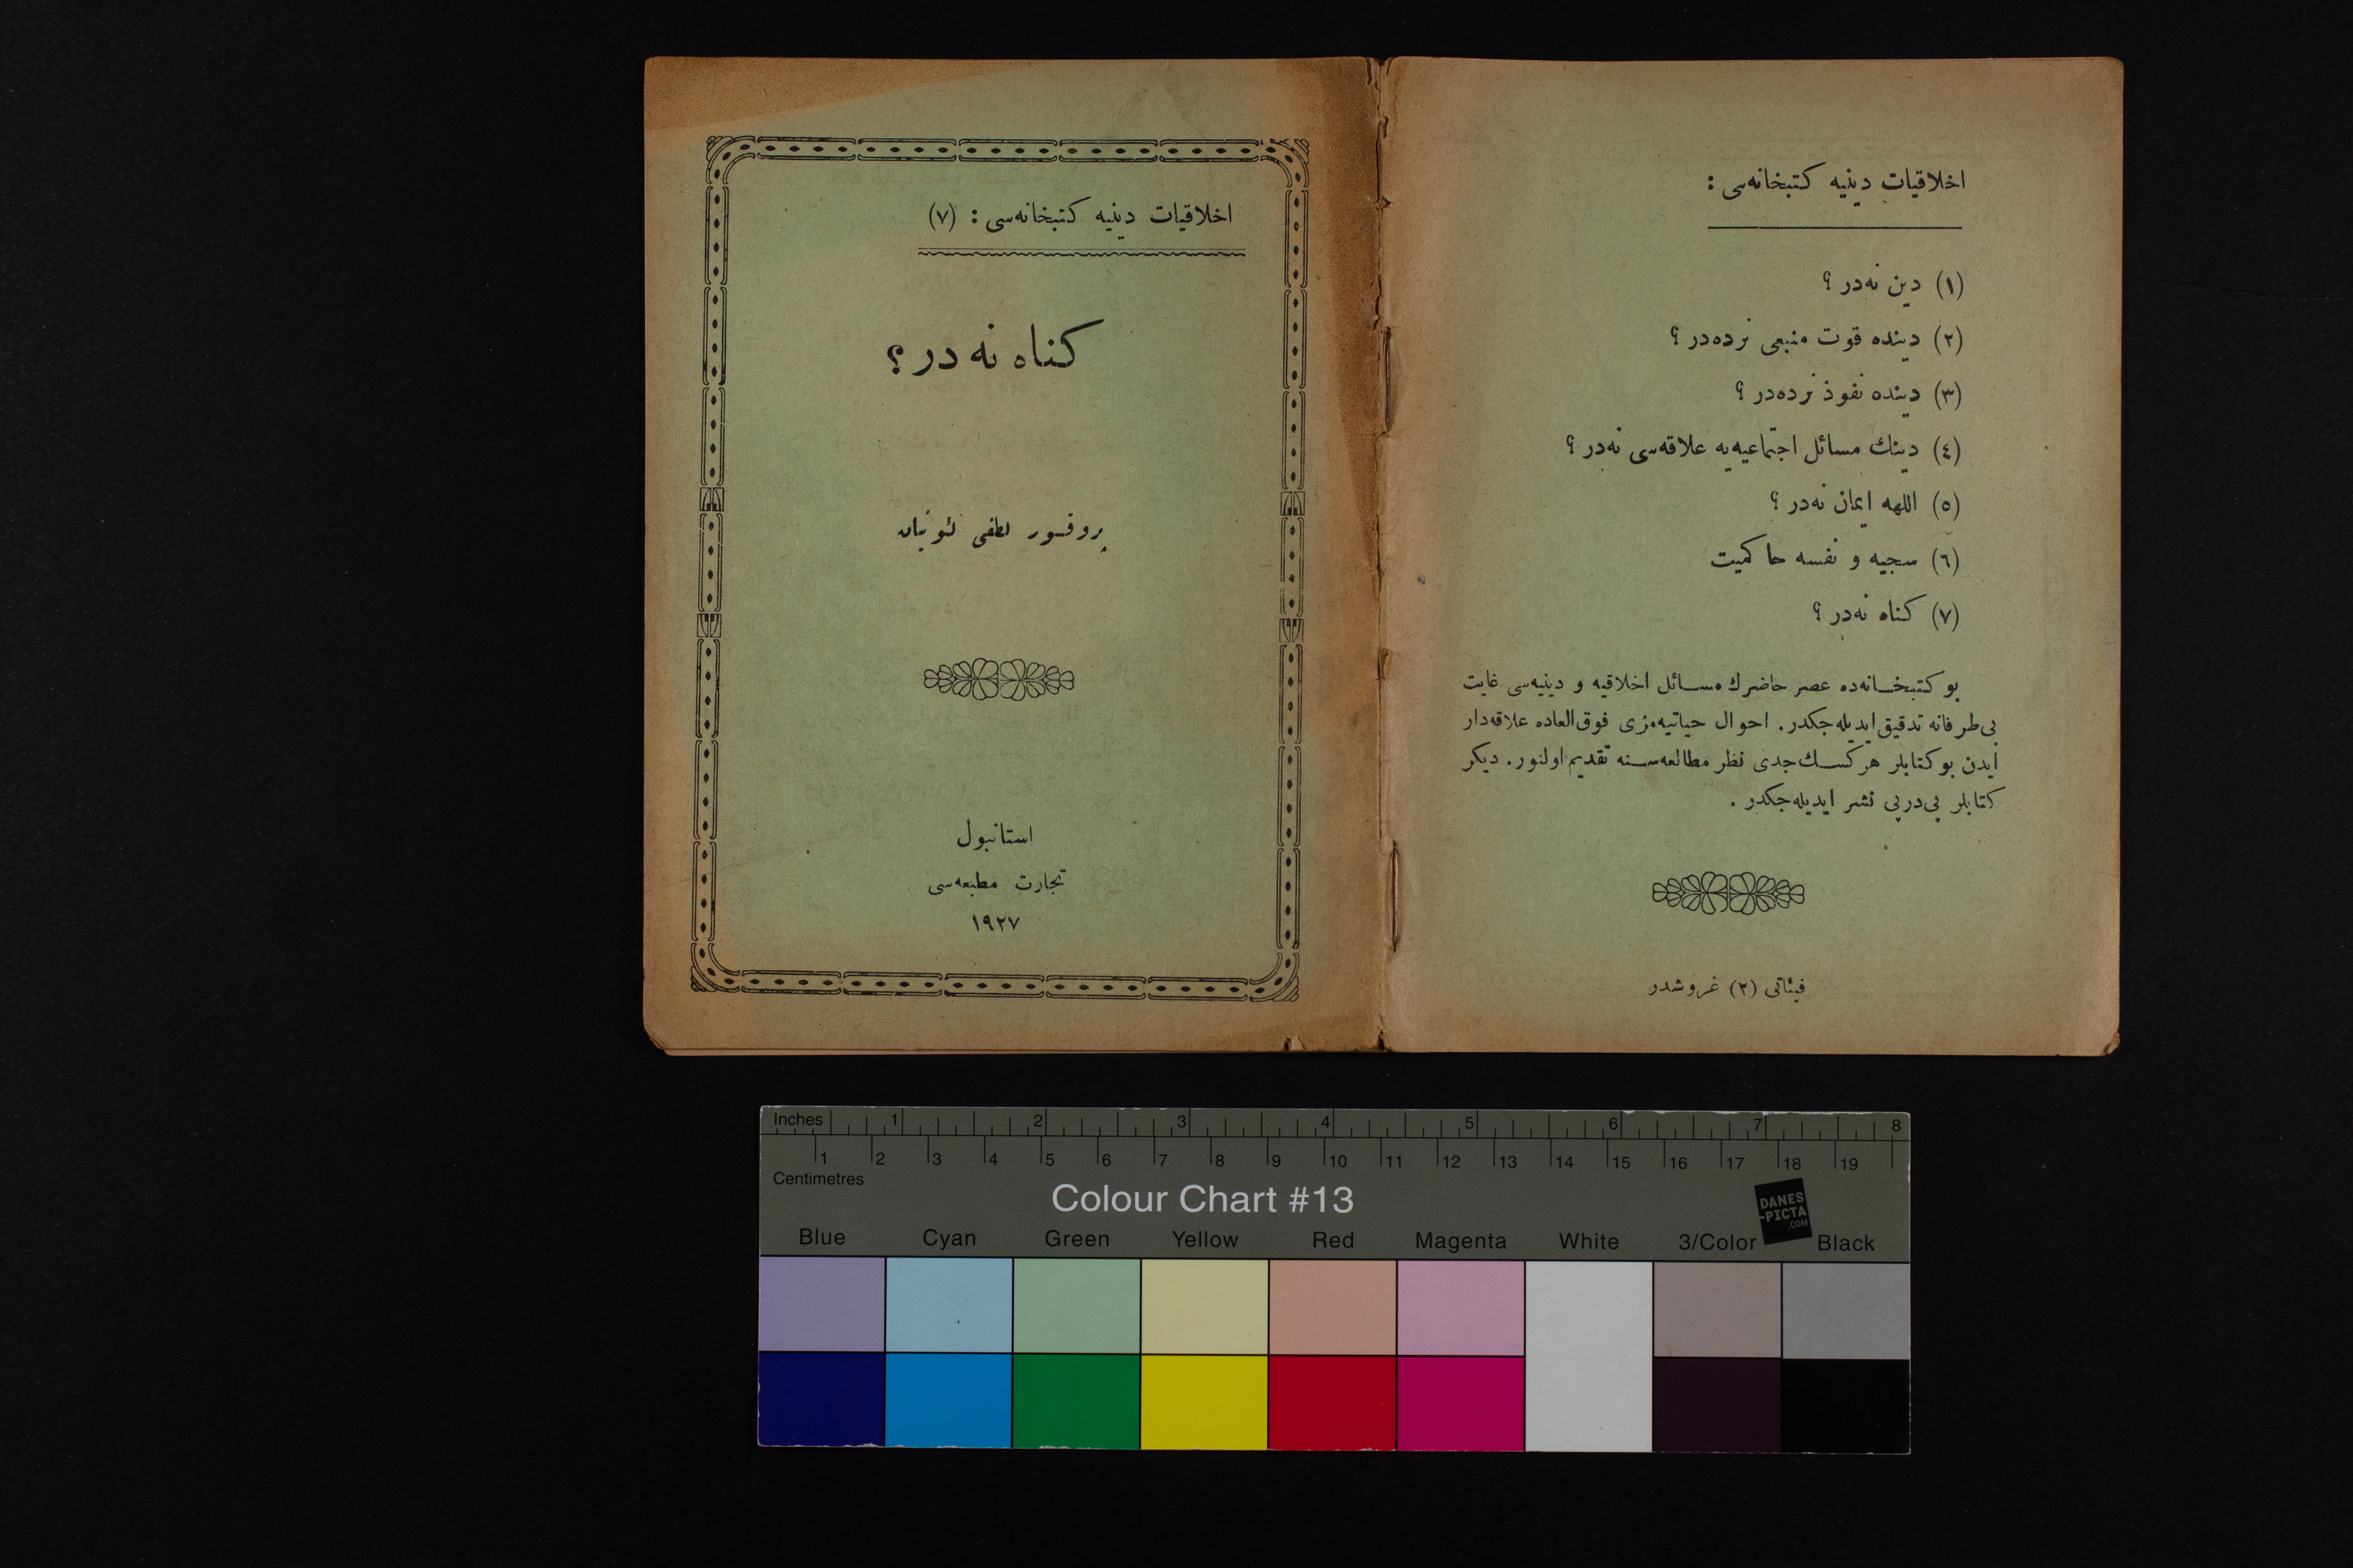 اخلاقیات دینیه کتبخانه‌سی : (٧)
کناه نه در ؟
پروفسور لطفی لئونیان
استانبول
تجارت مطبعه‌سی
١٩٢٧
اخلاقیات دینیه کتبخانه‌سی :
(١) دین نه‌در ؟
(٢) دینده قوت منبعی نرده‌در ؟
(٣) دینده نفوذ نرده‌در ؟
(٤) دینك مسائل اجتماعیه‌یه علاقه‌سی نه‌در ؟
(٥) اللهه ایمان نه‌در ؟
(٦) سجیه و نفسه حاکمیت
(٧) کناه نه‌در ؟
بو کتبخـانه‌ده عصر حاضرك مسـائل اخلاقیه و دینیه‌سی غایت
بی‌طرفانه تدقیق ایدیله‌جکدر. احوال حیاتیه‌مزی فوق‌العاده علاقه‌دار
ایدن بو کتابلر هرکسـك جدی نظر مطالعه‌سـنه تقدیم اولنور. دیکر
کتابلر پی‌درپی نشر ایدیله‌جکدر .
فیئاتی (٢) غروشدر
Inches 1 2 3 4 5 6 7 8
1 2 3 4 5 6 7 8 9 10 11 12 13 14 15 16 17 18 19
Centimetres
Colour Chart #13
DANES
-PICTA
.COM
Blue Cyan Green Yellow Red Magenta White 3/Color Black